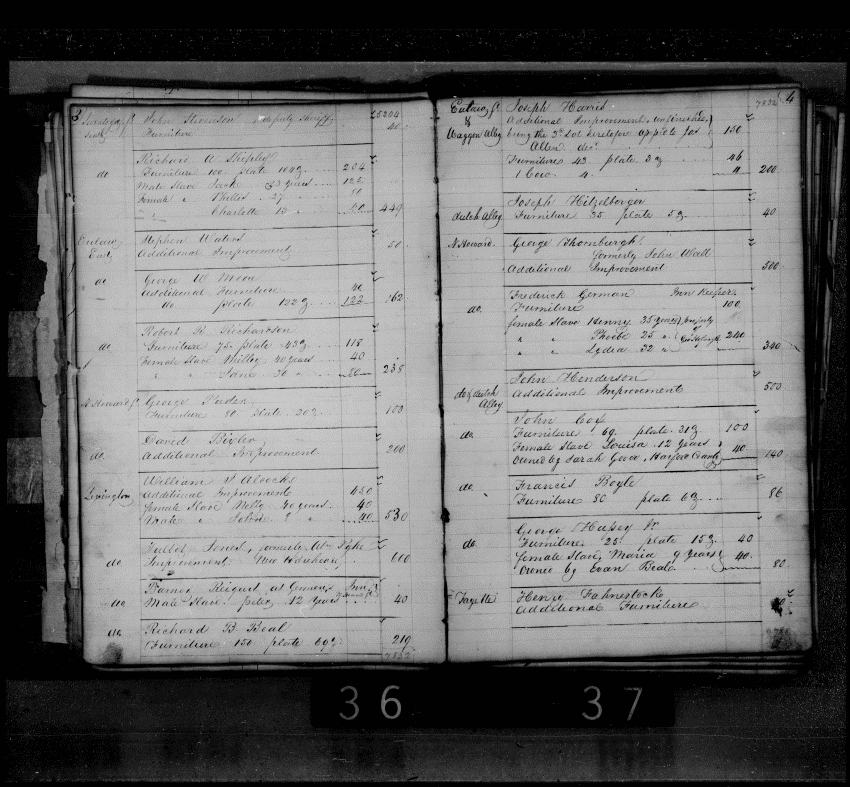 3
Saratoga St John Stevenson deputy Sheriff 5204
South Furniture 40
Richard A Shipley
do Furniture 100 plate 104 204
Male Slave 23 years 125
Female " Phillis 27 "
" Charlotte 13 " 449
Eutaw Stephen Waters
East Additional Improvement 50
George W Moon
do Additional Furniture 40
do plate 122 122 162
Robert R Richardson
do Furniture 75 plate 43 118
Female Slave Milley 40 years 40
" " Jane 30 " 80 238
N Howard St George
Furniture 80 plate 20 100
David Bixler
do Additional Improvement 200
William J Alcocke
Lexington Additional Improvements 450
female Slave 40 years 40
Male " " 40 530
Talbot Jones, formerly
do Improvement New 600
Barney Reigart at Inn
do Male Slave peter 12 years 40
do Richard B Beal
Furniture 150 plate 69 219
7832
4
7832
Eutaw St Joseph Harris
& Additional Improvement, unfinished
Waggon Alley being the 3d Lot heretofore to Jas 150
Allen decd
Furniture 43 plate 3 46
1 Cow 4 4 200
Joseph Hitzelberger
dutch Alley Furniture 35 plate 5 40
N Howard George Thornburgh
formerly John Wall
Additional Improvement 500
Frederick German Inn Keeper
do Furniture 100
female Slave Henny 35 years property
" " Phoebe 25 " 240
" " Lydia 32 " 340
John Henderson
do & dutch Additional Improvement 500
Alley
John Cox
do Furniture 69 plate 31 100
Female Slave Louisa 12 years 40
owned by Sarah Gover, Harford County 140
do Francis Boyle
Furniture 80 plate 6 86
George
do Furniture 25 plate 15 40
female Slave, Maria 9 years 40
owned by Evan Beale 80
Fayette Henry Fahnestock
Additional Furniture
36
37